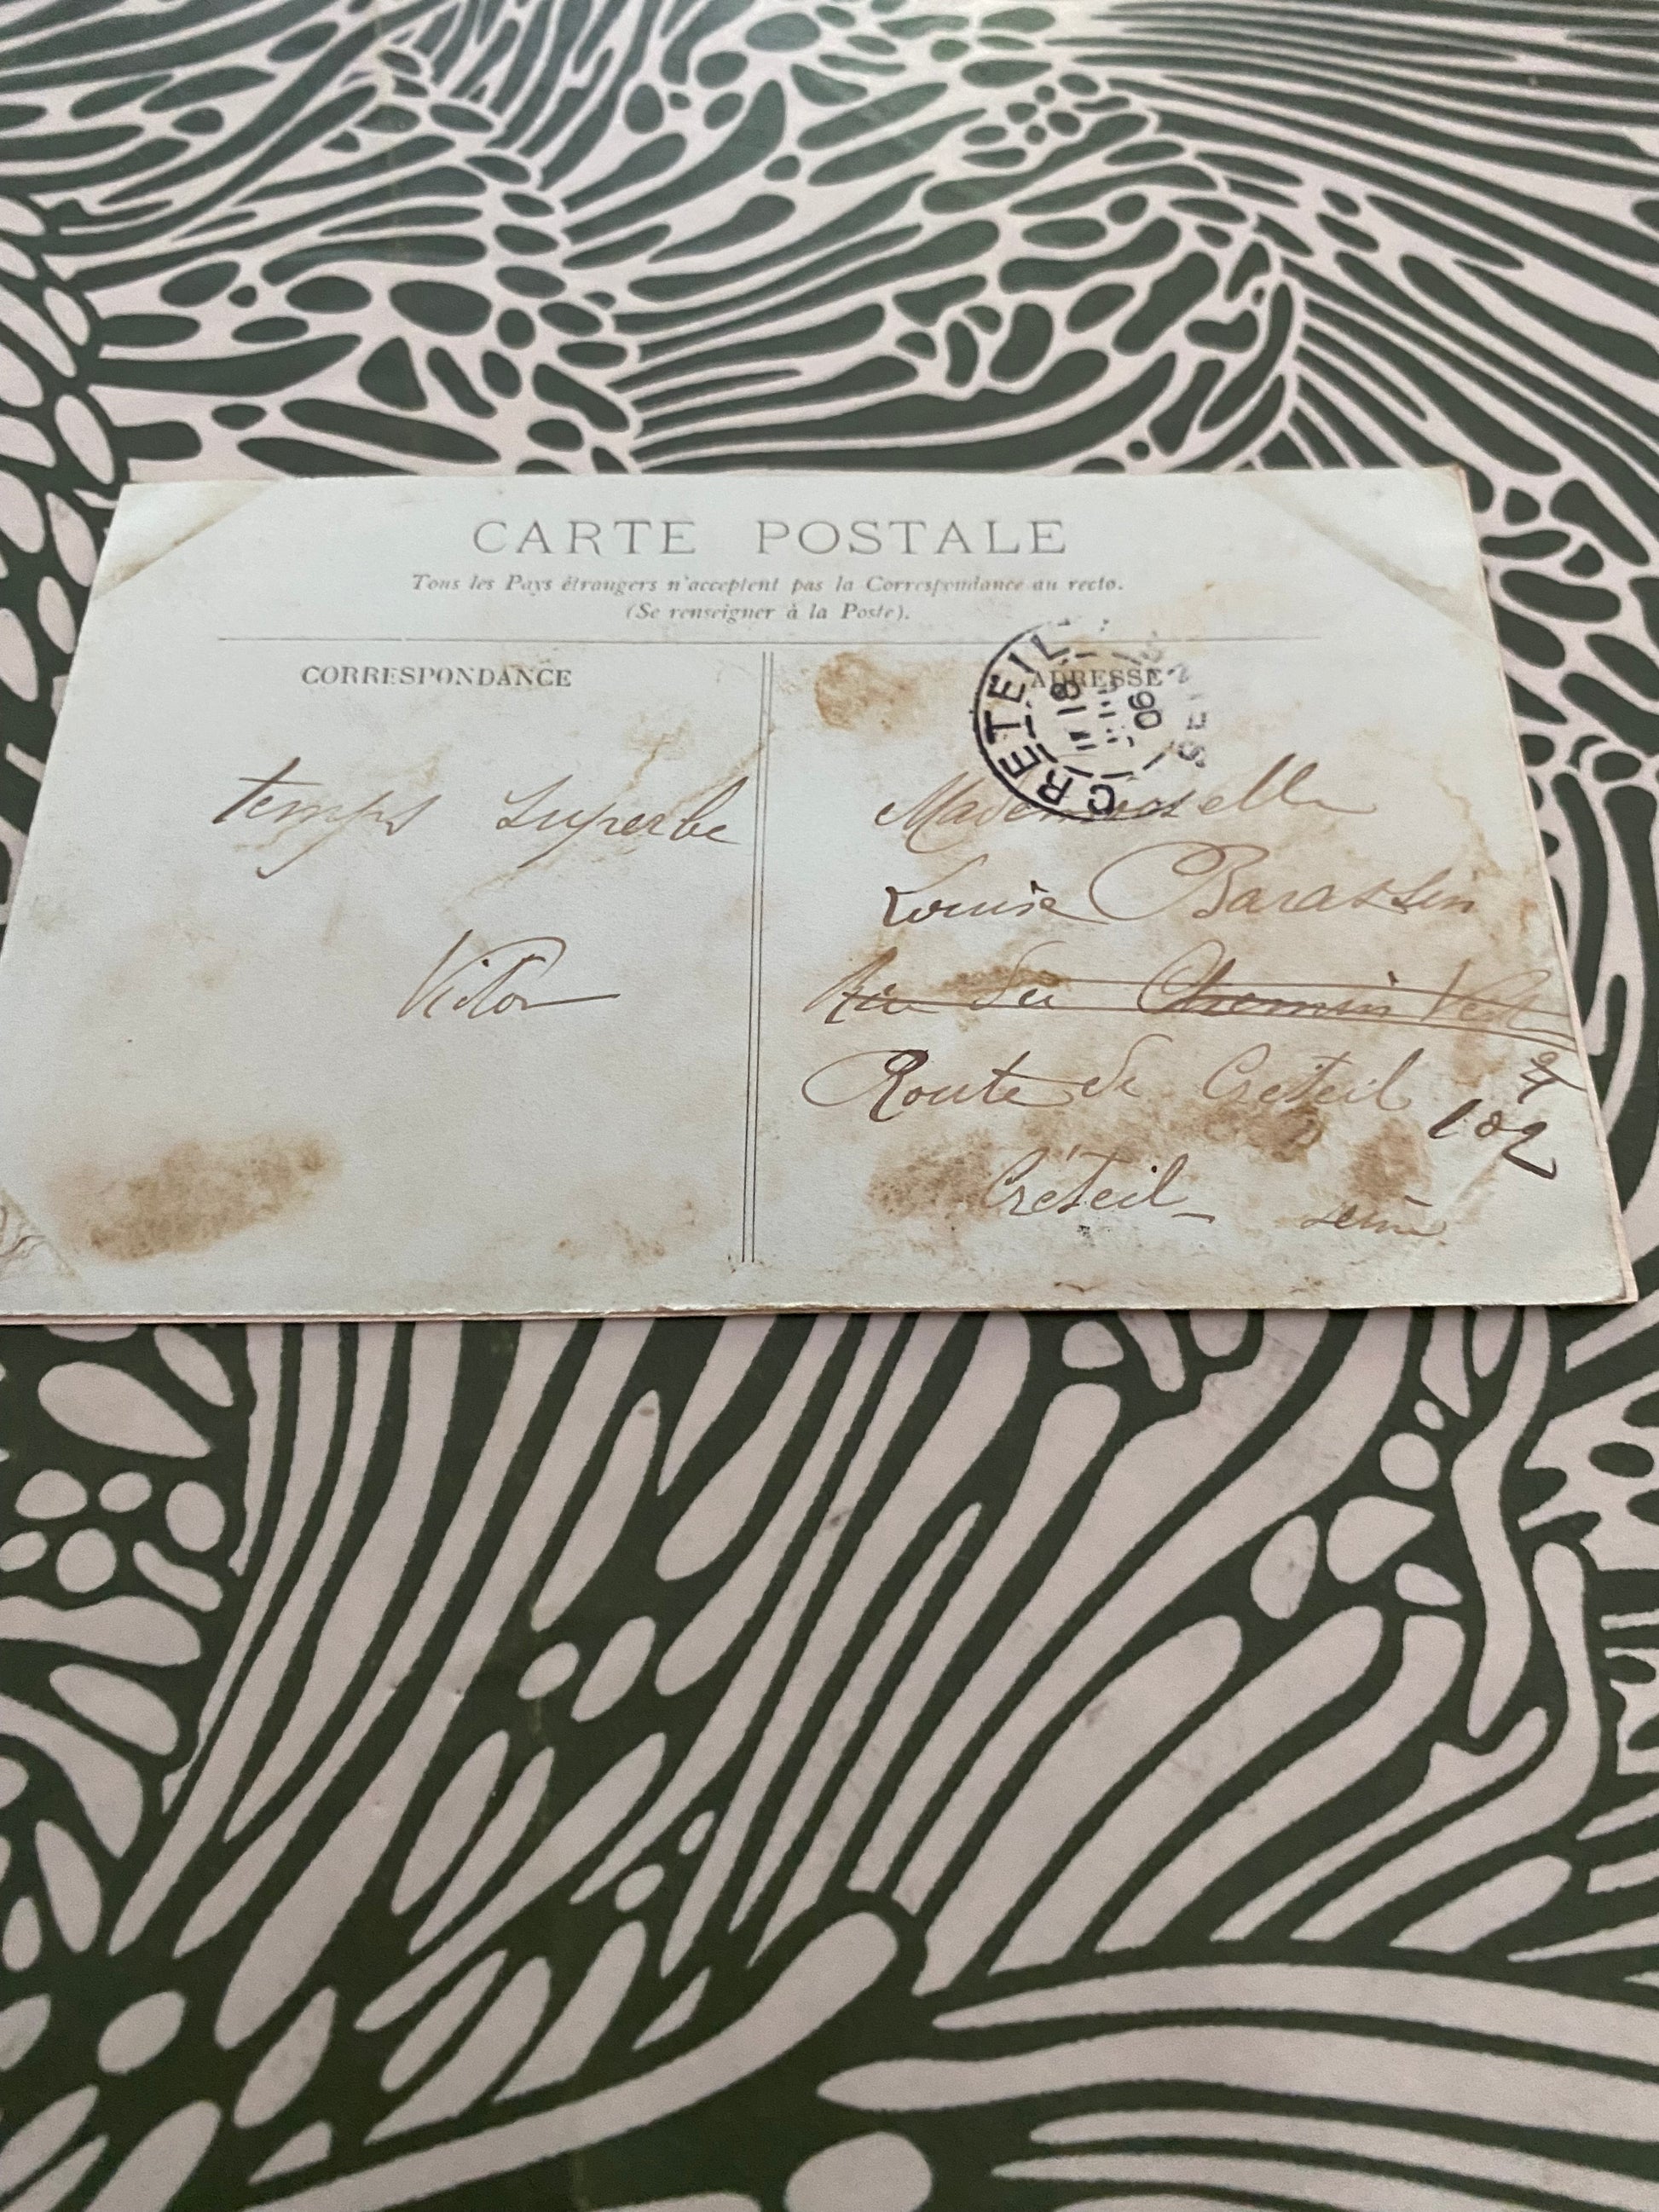 CARTE POSTALE
Tous les Pays étrangers n'acceptent pas la Correspondance au recto.
(Se renseigner à la Poste).
CORRESPONDANCE
temps superbe
Victor
ADRESSE
CRETEIL
18
06
SEINE
Mademoiselle
Louise Barassin
Rue du Chemin Vert
Route de Creteil
102
Créteil_ seine